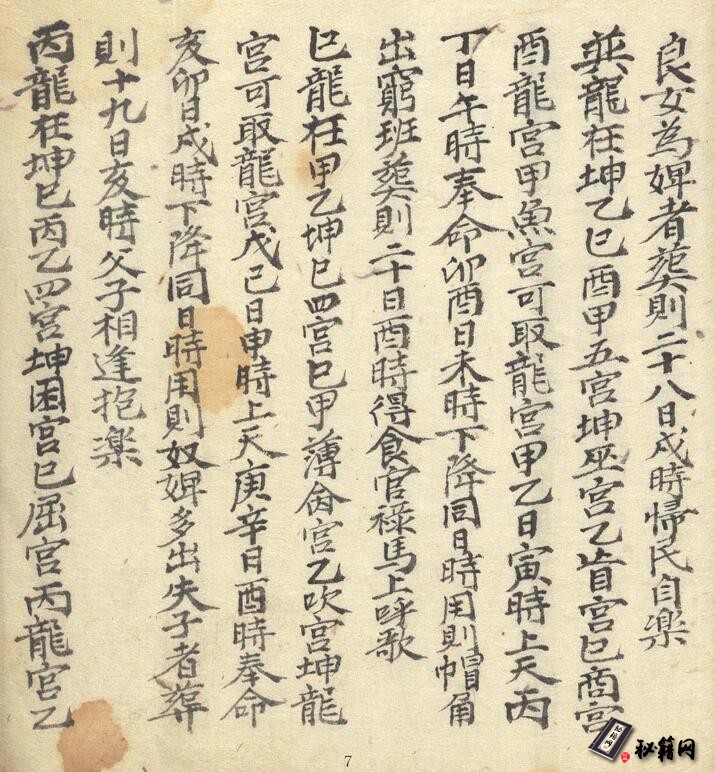 良女為婢者葬則二十八日戌時帰民自楽
巽龍在坤乙巳酉甲五宮坤巫宮乙盲宮巳商宮
酉龍宮甲魚宮可取龍宮甲乙日寅時上天丙
丁日午時奉命卯酉日未時下降同日時用則帽角
出窮班葬則二十日酉時得食官禄馬上呼歌
巳龍在甲乙坤巳四宮巳甲薄宮乙吹宮坤龍
宮可取龍宮戊己日申時上天庚辛日酉時奉命
亥卯日戌時下降同日時用則奴婢多出失子者葬
則十九日亥時父子相逢抱楽
丙龍在坤巳丙乙四宮坤困宮巳屈宮丙龍宮乙
7
秘籍网